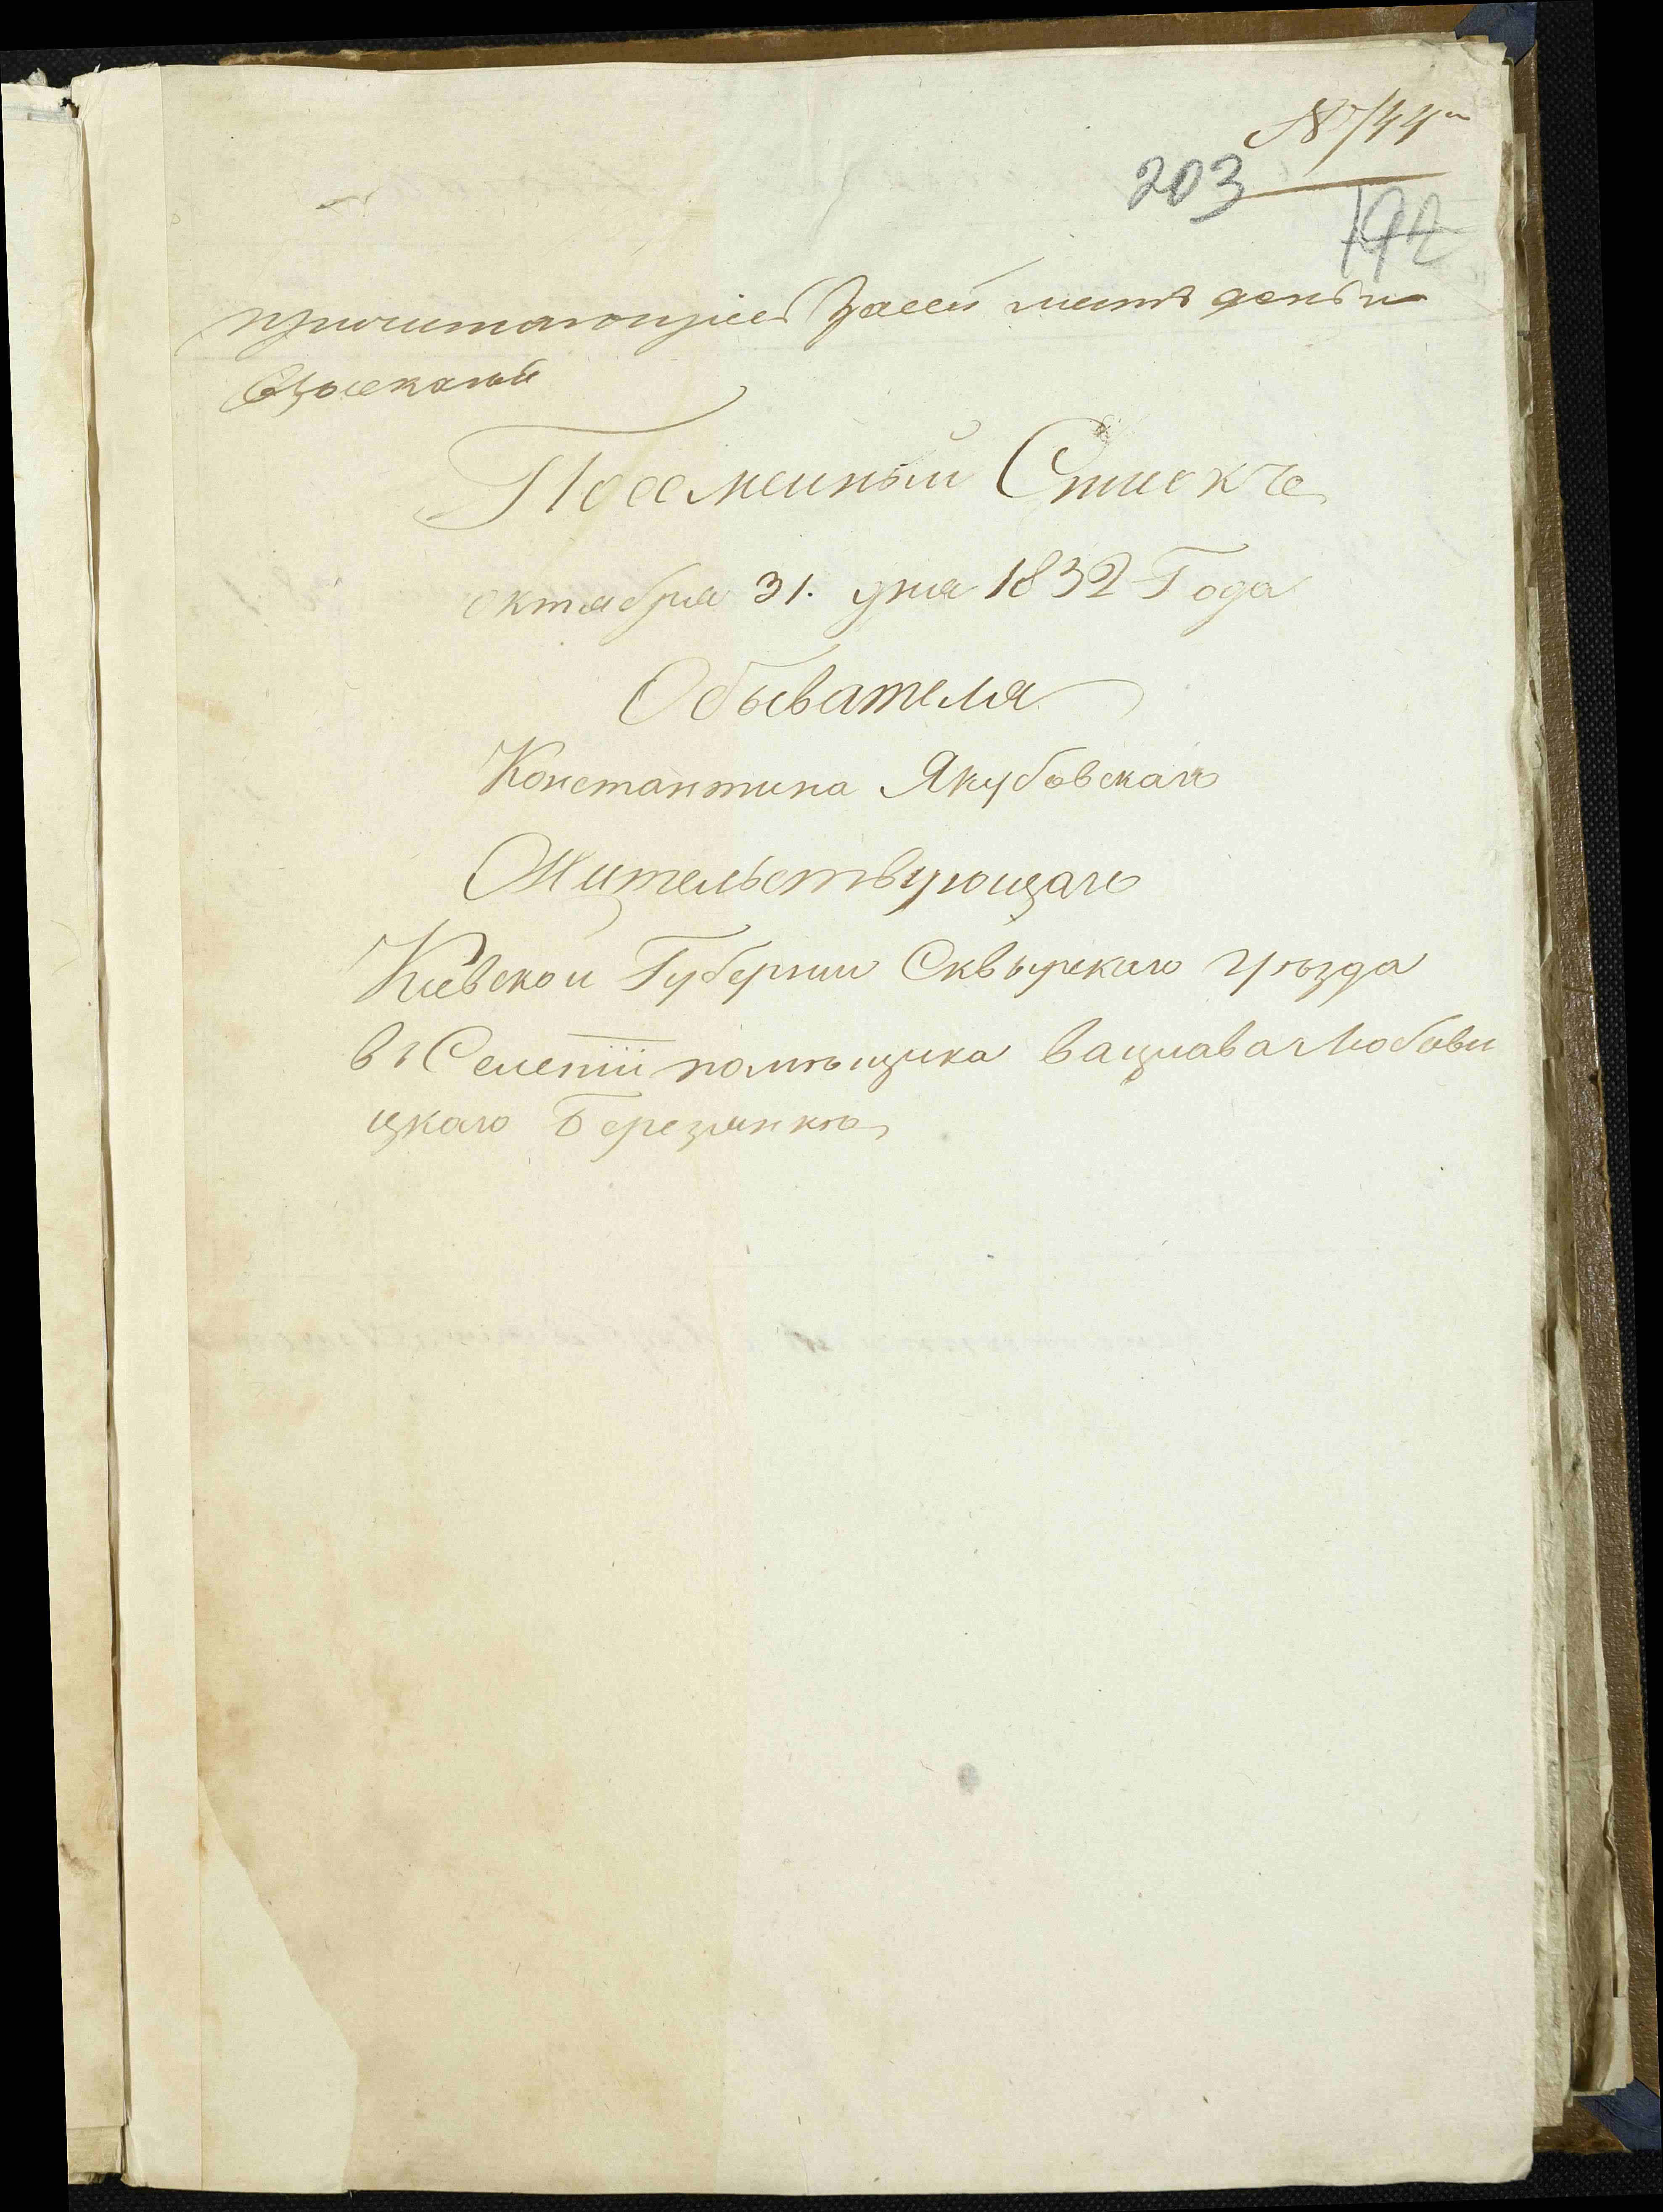 № 144й
203
192
причитающіеся за сей листъ деньги
взысканы
Посемейный Списокъ
октября 31. дня 1832 Года
Обывателя
Константина Якубовскаго
Жительствующаго
Киевской Губернии Сквырскаго уѣзда
въ Селеніи помѣщика Вацлава Любови
цкаго Березянкѣ